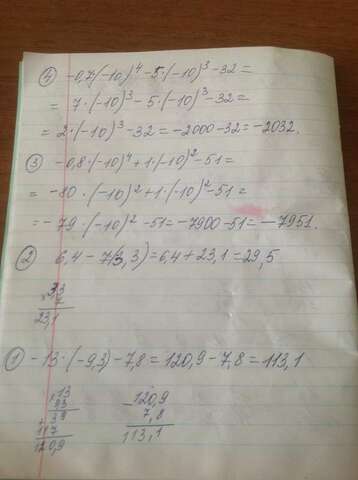 ④ -0,7·(-10)⁴-5·(-10)³-32=
= 7·(-10)³-5·(-10)³-32=
= 2·(-10)³-32=-2000-32=-2032.
③ -0,8·(-10)⁴+1·(-10)²-51=
= -80·(-10)²+1·(-10)²-51=
= -79·(-10)²-51=-7900-51=-7951.
② 6,4-7(3,3)=6,4+23,1=29,5
×33
7
23,1
① -13·(-9,3)-7,8=120,9-7,8=113,1
×13
93
39
117
120,9
-120,9
7,8
113,1